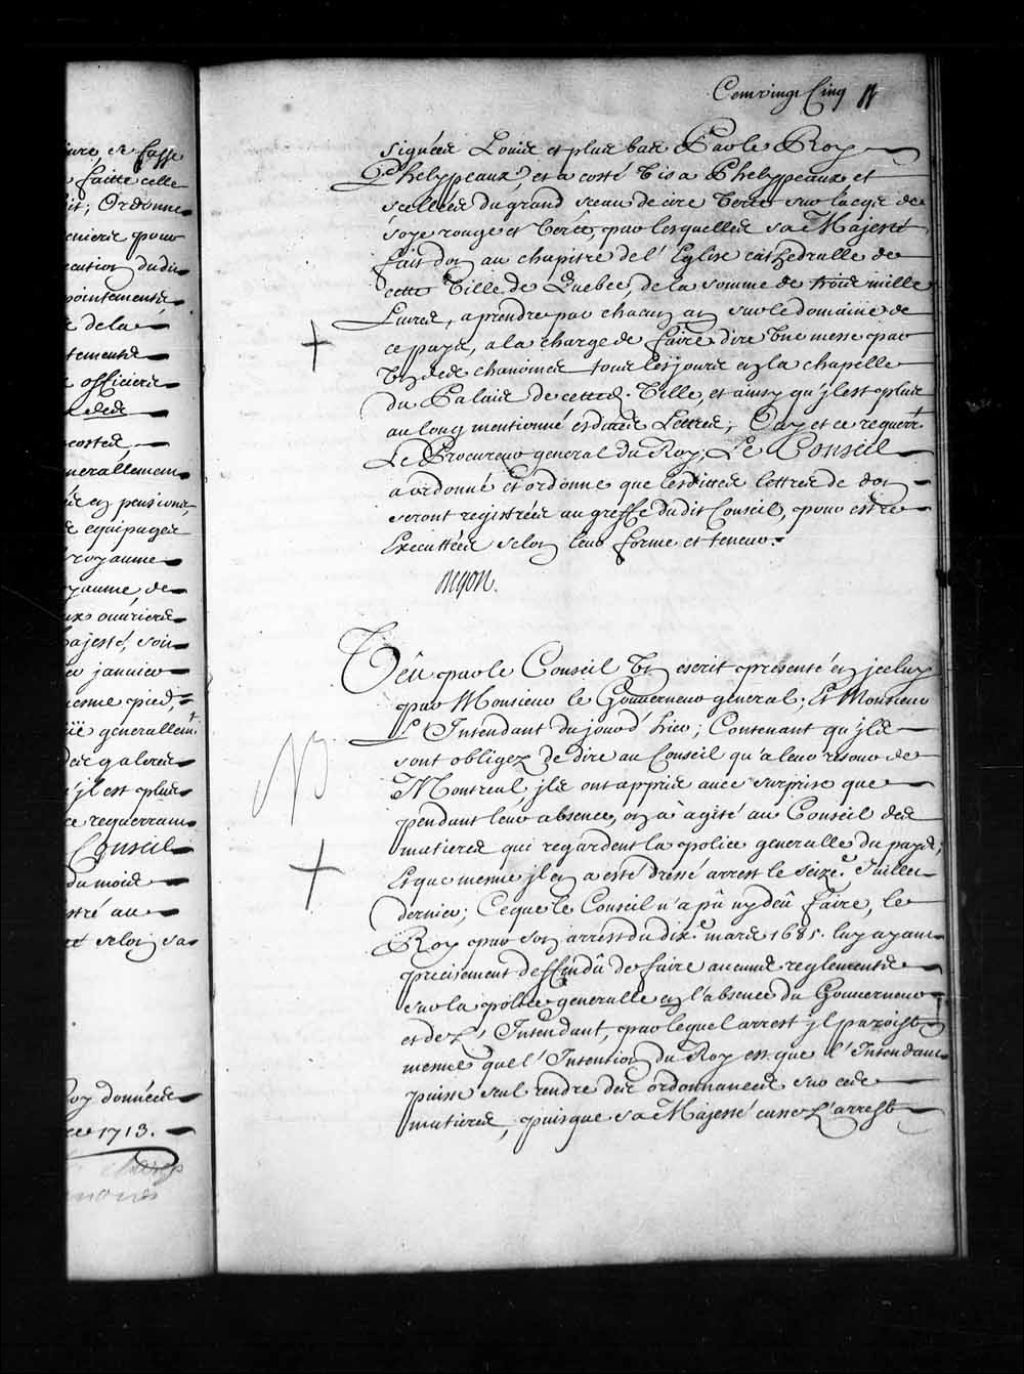 Cent vingt Cinq
iure et fasse
faitte celle
it; Ordonne
enierie pour
ecution dudit
pointements
de la
tements
officiers
costés,
nerallement
en pensions
equipages
royaume
yaume, de
ouuriers
Majesté, soit
janvier
mesme pied,
generallemt
des galeres
qu'jl est plus
ce requerrant
Conseil
du mois
stré au
selon sa
Roy données
1713.
signées Louis et plus bas Par le Roy
Phelypeaux, et a costé Visa Phelypeaux et
scellées du grand sceau de cire Verte sur lacqs de
soye rouge et Verte, par lesquelles sa Majesté
fait don au chapitre de l'Eglise cathedralle de
cette Ville de Quebec, de la somme de trois mille
Livres, a prendre par chacun an sur le domaine de
ce pays, a la charge de faire dire Vne messe par
Vn des chanoines tous les jours en la chapelle
du Palais de cette d. Ville, et ainsy qu'jl est plus
au long mentionné esdites Lettres; Ouy et ce requerrt
Le Procureur general du Roy; Le Conseil
a ordonné et ordonne que lesdittes lettres de don
seront registrées au greffe dudit Conseil, pour estre
Executtées selon leur forme et teneur.
Begon.
Veû par le Conseil Vn escrit presenté en jceluy
par Monsieur le Gouverneur general, Et Monsieur
L'Intendant du jourd'hier; Contenant qu'jls
sont obligez de dire au Conseil qu'a leur retour de
Montreal jls ont appris auec surprise que
pendant leur absence, on a agité au Conseil des
matieres qui regardent la police generalle du pays;
Et que mesme jl en a esté dressé arrest le seize. Juillet
dernier; Ce que le Conseil n'a pû ny deû faire, le
Roy par son arrest du dix.e mars 1685. luy ayant
precisement deffendû de faire aucuns reglements
sur la police generalle en l'absence du Gouverneur
et de L'Intendant, par lequel arrest jl paroist
mesme que l'Intention du Roy est que l'Intendant
puisse seul rendre des ordonnances sur ces
matieres, puisque sa Majesté casse L'arrest